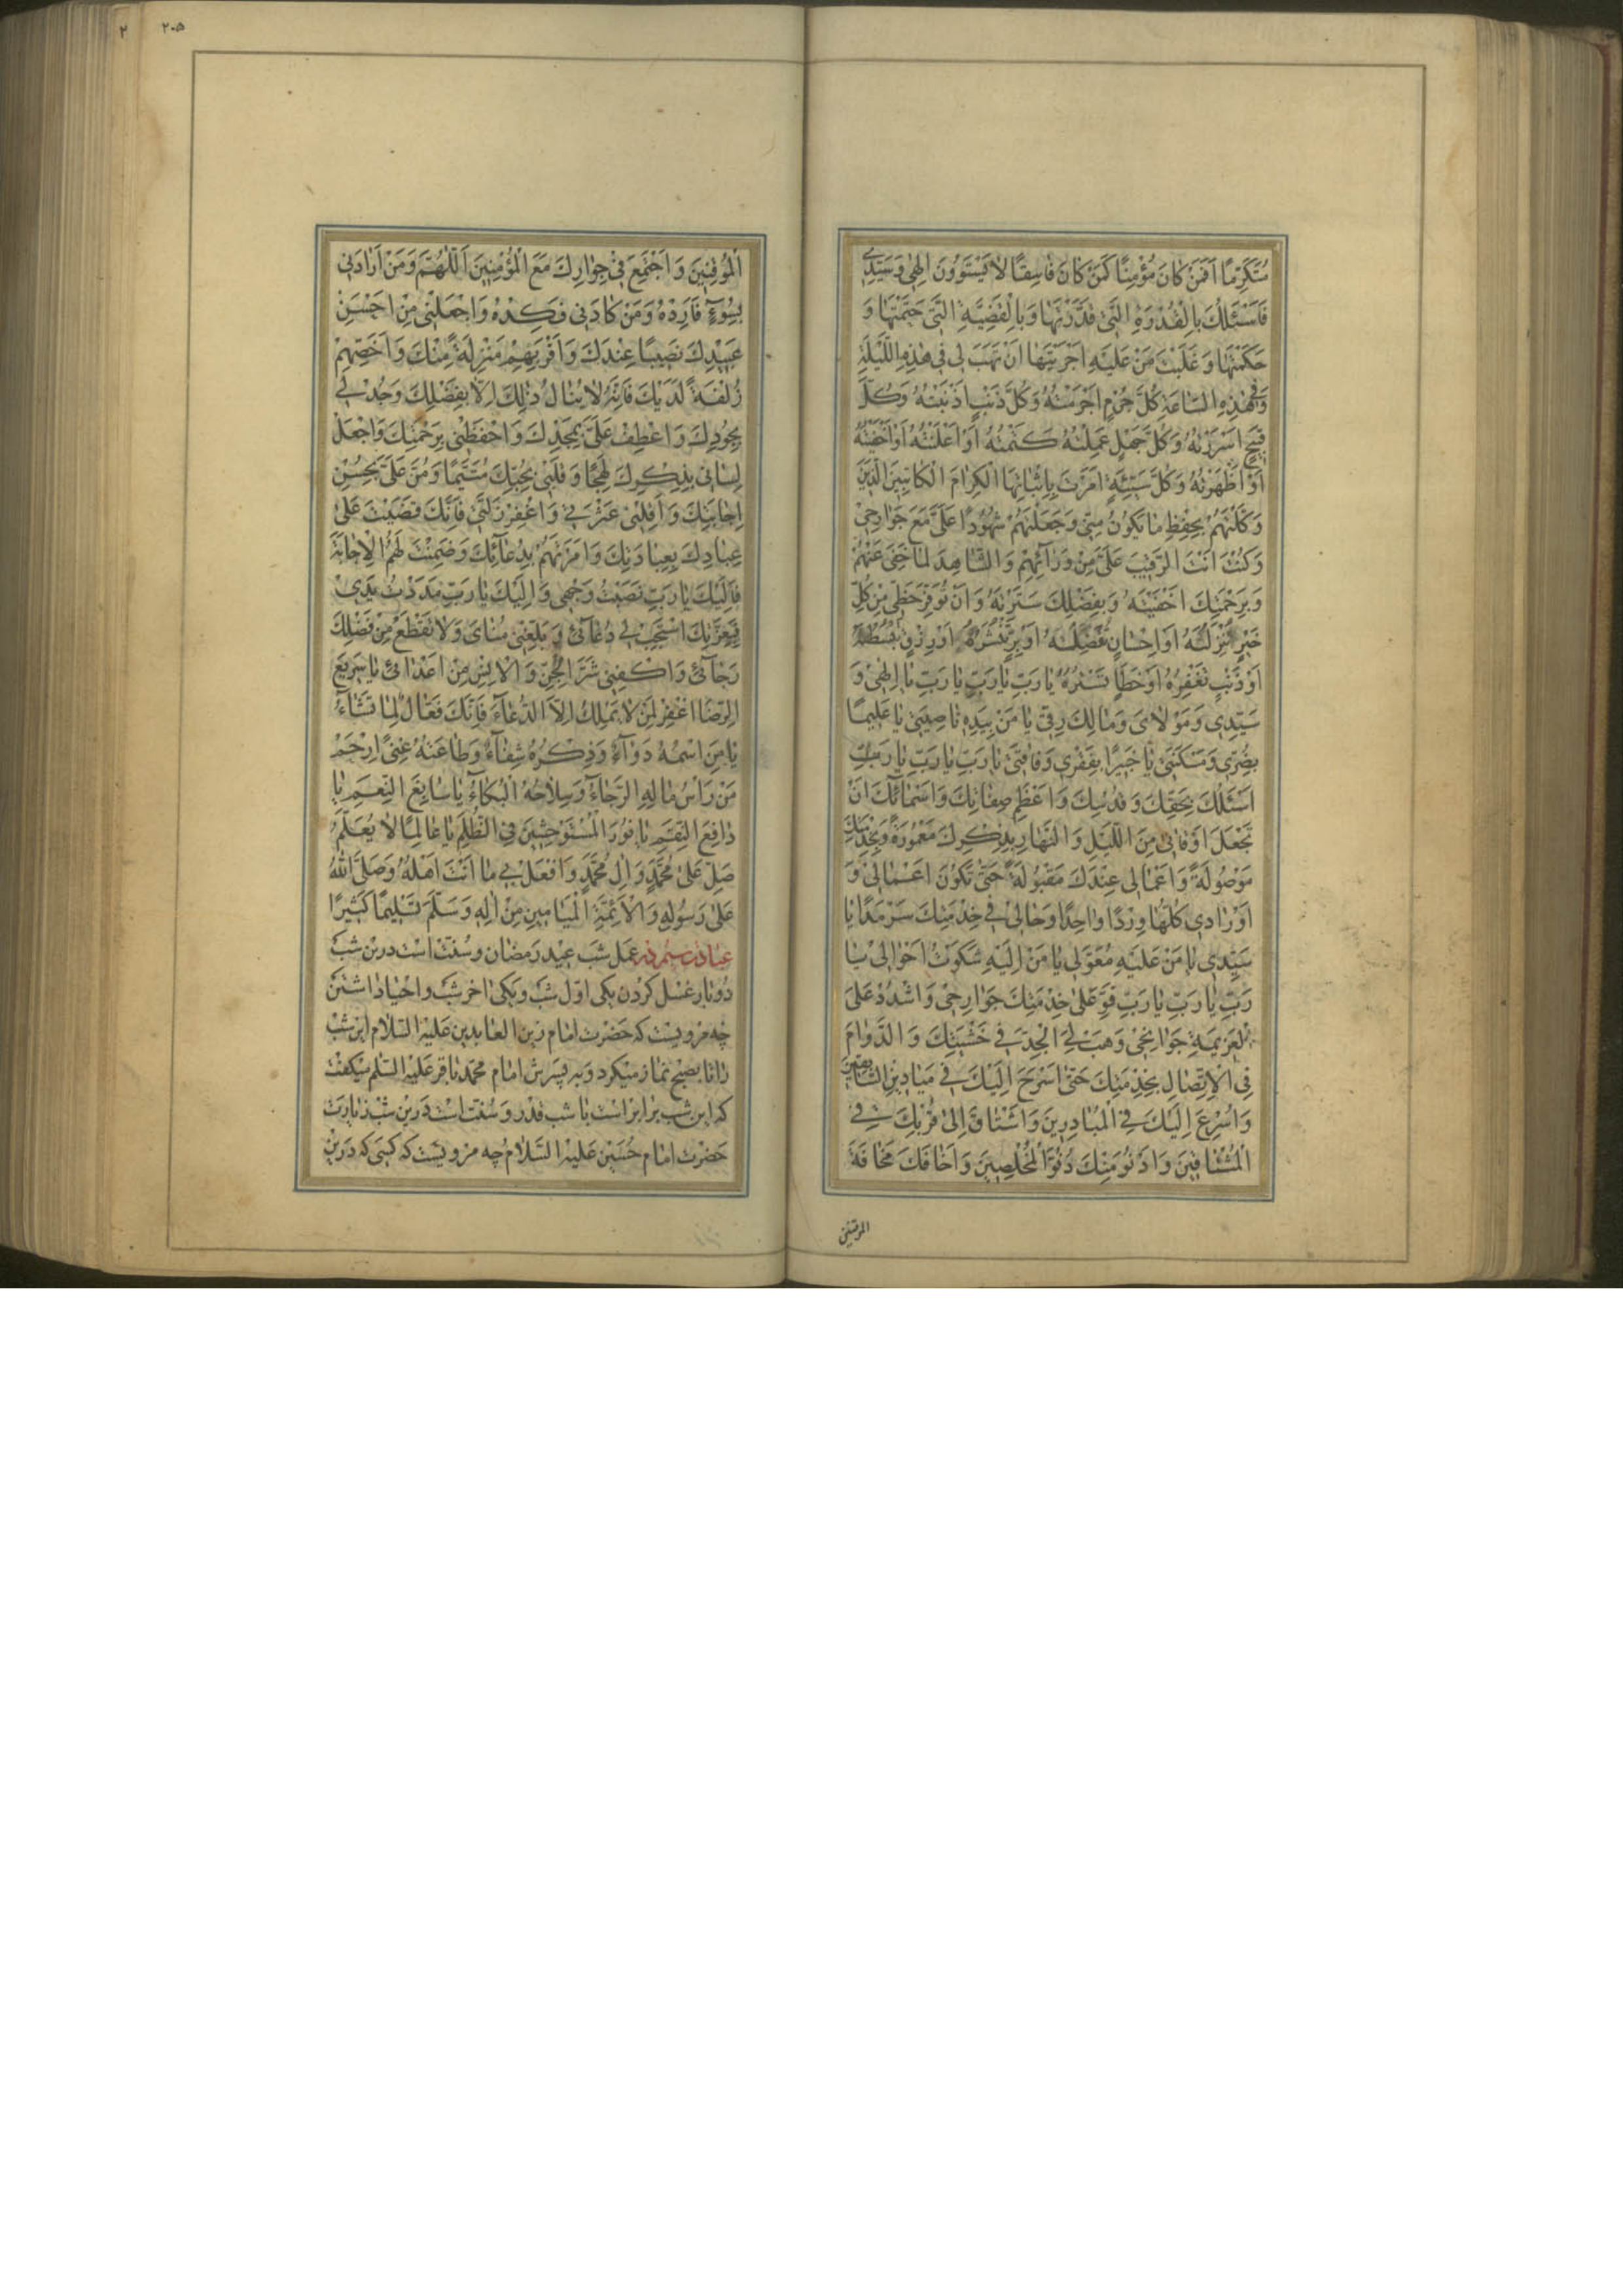 مُتَكَرِّمًا اَفَمَنْ كانَ مُؤْمِنًا كَمَنْ كانَ فاسِقًا لا يَسْتَوُونَ اِلٰهي وَسَيِّدي
فَاَسْئَلُكَ بِالْقُدْرَةِ الَّتي قَدَّرْتَها وَبِالْقَضِيَّةِ الَّتي حَتَمْتَها وَ
حَكَمْتَها وَغَلَبْتَ مَنْ عَلَيْهِ اَجْرَيْتَها اَنْ تَهَبَ لي في هٰذِهِ اللَّيْلَةِ
وَفي هٰذِهِ السّاعَةِ كُلَّ جُرْمٍ اَجْرَمْتُهُ وَكُلَّ ذَنْبٍ اَذْنَبْتُهُ وَكُلَّ
قَبيحٍ اَسْرَرْتُهُ وَكُلَّ جَهْلٍ عَمِلْتُهُ كَتَمْتُهُ اَوْ اَعْلَنْتُهُ اَوْ اَخْفَيْتُهُ
اَوْ اَظْهَرْتُهُ وَكُلَّ سَيِّئَةٍ اَمَرْتَ بِاِثْباتِهَا الْكِرامَ الْكاتِبينَ الَّذينَ
وَكَّلْتَهُمْ بِحِفْظِ ما يَكُونُ مِنّي وَجَعَلْتَهُمْ شُهُودًا عَلَيَّ مَعَ جَوارِحي
وَكُنْتَ اَنْتَ الرَّقيبَ عَلَيَّ مِنْ وَرائِهِمْ وَالشّاهِدَ لِما خَفِيَ عَنْهُمْ
وَبِرَحْمَتِكَ اَخْفَيْتَهُ وَبِفَضْلِكَ سَتَرْتَهُ وَاَنْ تُوَفِّرَ حَظّي مِنْ كُلِّ
خَيْرٍ تُنْزِلُهُ اَوْ اِحْسانٍ تُفَضِّلُهُ اَوْ بِرٍّ تَنْشُرُهُ اَوْ رِزْقٍ تَبْسُطُهُ
اَوْ ذَنْبٍ تَغْفِرُهُ اَوْ خَطَإٍ تَسْتُرُهُ يا رَبِّ يا رَبِّ يا رَبِّ يا اِلٰهي وَ
سَيِّدي وَمَوْلايَ وَمالِكَ رِقّي يا مَنْ بِيَدِهِ ناصِيَتي يا عَليمًا
بِضُرّي وَمَسْكَنَتي يا خَبيرًا بِفَقْري وَفاقَتي يا رَبِّ يا رَبِّ يا رَبِّ
اَسْئَلُكَ بِحَقِّكَ وَقُدْسِكَ وَاَعْظَمِ صِفاتِكَ وَاَسْمائِكَ اَنْ
تَجْعَلَ اَوْقاتي مِنَ اللَّيْلِ وَالنَّهارِ بِذِكْرِكَ مَعْمُورَةً وَبِخِدْمَتِكَ
مَوْصُولَةً وَاَعْمالي عِنْدَكَ مَقْبُولَةً حَتّى تَكُونَ اَعْمالي وَ
اَوْرادي كُلُّها وِرْدًا واحِدًا وَحالي في خِدْمَتِكَ سَرْمَدًا يا
سَيِّدي يا مَنْ عَلَيْهِ مُعَوَّلي يا مَنْ اِلَيْهِ شَكَوْتُ اَحْوالي يا
رَبِّ يا رَبِّ يا رَبِّ قَوِّ عَلى خِدْمَتِكَ جَوارِحي وَاشْدُدْ عَلَى
الْعَزيمَةِ جَوانِحي وَهَبْ لِيَ الْجِدَّ في خَشْيَتِكَ وَالدَّوامَ
فِي الْاِتِّصالِ بِخِدْمَتِكَ حَتّى اَسْرَحَ اِلَيْكَ في مَيادينِ السّابِقينَ
وَاُسْرِعَ اِلَيْكَ فِي الْمُبادِرينَ وَاَشْتاقَ اِلى قُرْبِكَ فِي
الْمُشْتاقينَ وَاَدْنُوَ مِنْكَ دُنُوَّ الْمُخْلِصينَ وَاَخافَكَ مَخافَةَ
الموقنین
۲۰۵
۲
الْمُوقِنينَ وَاَجْتَمِعَ في جِوارِكَ مَعَ الْمُؤْمِنينَ اَللّهُمَّ وَمَنْ اَرادَني
بِسُوءٍ فَاَرِدْهُ وَمَنْ كادَني فَكِدْهُ وَاجْعَلْني مِنْ اَحْسَنِ
عَبيدِكَ نَصيبًا عِنْدَكَ وَاَقْرَبِهِمْ مَنْزِلَةً مِنْكَ وَاَخَصِّهِمْ
زُلْفَةً لَدَيْكَ فَاِنَّهُ لا يُنالُ ذٰلِكَ اِلّا بِفَضْلِكَ وَجُدْ لي
بِجُودِكَ وَاعْطِفْ عَلَيَّ بِمَجْدِكَ وَاحْفَظْني بِرَحْمَتِكَ وَاجْعَلْ
لِساني بِذِكْرِكَ لَهِجًا وَقَلْبي بِحُبِّكَ مُتَيَّمًا وَمُنَّ عَلَيَّ بِحُسْنِ
اِجابَتِكَ وَاَقِلْني عَثْرَتي وَاغْفِرْ زَلَّتي فَاِنَّكَ قَضَيْتَ عَلى
عِبادِكَ بِعِبادَتِكَ وَاَمَرْتَهُمْ بِدُعائِكَ وَضَمِنْتَ لَهُمُ الْاِجابَةَ
فَاِلَيْكَ يا رَبِّ نَصَبْتُ وَجْهي وَاِلَيْكَ يا رَبِّ مَدَدْتُ يَدي
فَبِعِزَّتِكَ اسْتَجِبْ لي دُعائي وَبَلِّغْني مُنايَ وَلا تَقْطَعْ مِنْ فَضْلِكَ
رَجائي وَاكْفِني شَرَّ الْجِنِّ وَالْاِنْسِ مِنْ اَعْدائي يا سَريعَ
الرِّضا اغْفِرْ لِمَنْ لا يَمْلِكُ اِلَّا الدُّعاءَ فَاِنَّكَ فَعّالٌ لِما تَشاءُ
يا مَنِ اسْمُهُ دَواءٌ وَذِكْرُهُ شِفاءٌ وَطاعَتُهُ غِنىً اِرْحَمْ
مَنْ رَأْسُ مالِهِ الرَّجاءُ وَسِلاحُهُ الْبُكاءُ يا سابِغَ النِّعَمِ يا
دافِعَ النِّقَمِ يا نُورَ الْمُسْتَوْحِشينَ فِي الظُّلَمِ يا عالِمًا لا يُعَلَّمُ
صَلِّ عَلى مُحَمَّدٍ وَالِ مُحَمَّدٍ وَافْعَلْ بي ما اَنْتَ اَهْلُهُ وَصَلَّى اللهُ
عَلى رَسُولِهِ وَالْاَئِمَّةِ الْمَيامينَ مِنْ الِهِ وَسَلَّمَ تَسْليمًا كَثيرًا
عبادت عمل شب عید رمضان و سنّت است درین شب
دو بار غسل کردن یکی اوّل شب و یکی اخر شب و احیا داشتن
چه مرویست که حضرت امام زین العابدین علیه السلام این شب
را تا بصبح نماز میکرد و به پسرش امام محمد باقر علیه السلم میکفت
که این شب برابر است با شب قدر و سنّت است درین شب زیارت
حضرت امام حسین علیه السّلام چه مرویست که کسی که درین